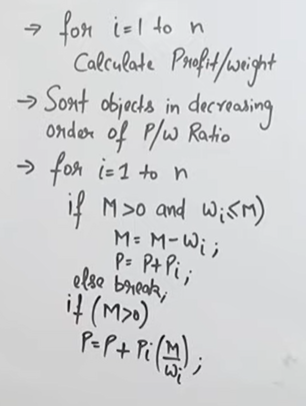 → for i=1 to n
Calculate Profit/weight
→ Sort objects in decreasing
order of P/W Ratio
→ for i=1 to n
if M>0 and Wi≤M)
M= M-Wi;
P= P+Pi;
else break;
if (M>0)
P=P+Pi(M/Wi);